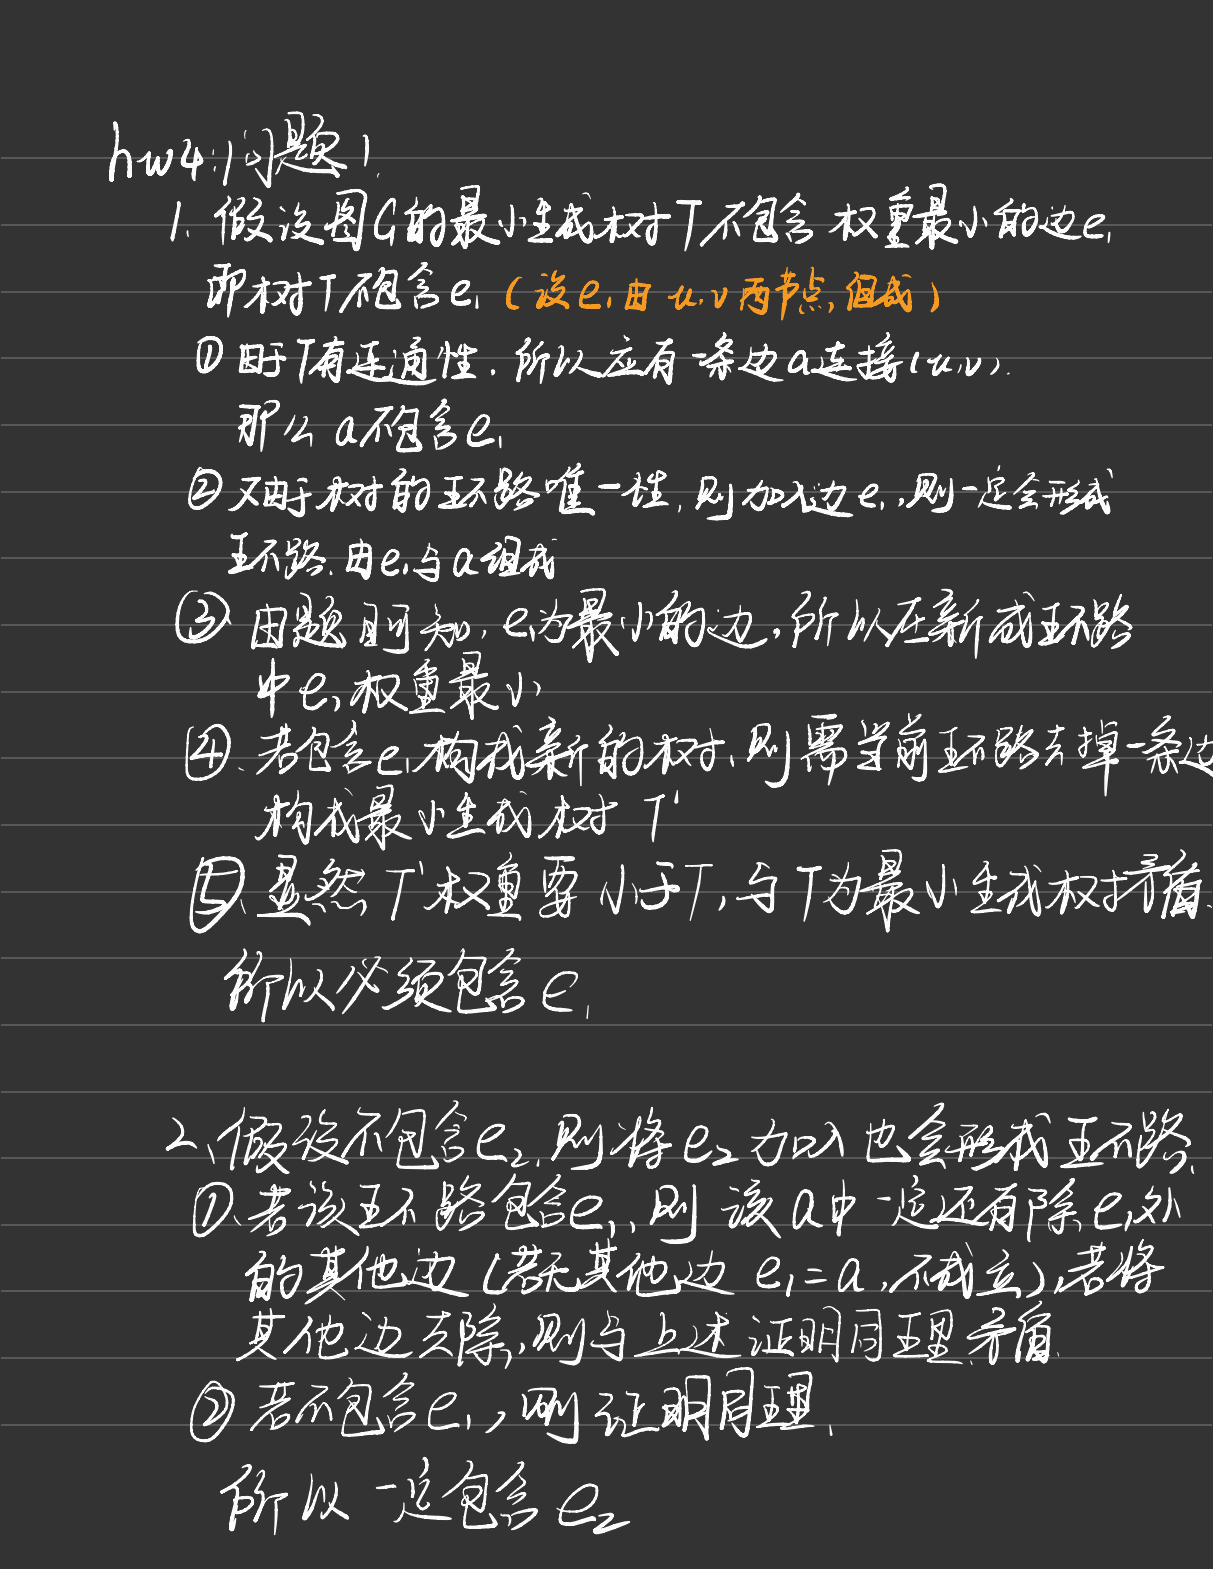 hw4:问题1
1. 假设图G的最小生成树T不包含权重最小的边e₁
即树T不包含e₁（设e₁由u,v两节点组成）
① 由于T有连通性，所以应有一条边a连接(u,v).
那么a不包含e₁
② 又由于树的环路唯一性，则加入边e₁，则一定会形成
环路，由e₁与a组成
③ 由题目可知，e₁为最小的边，所以在新成环路
中e₁权重最小
④、若包含e₁构成新的树，则需当前环路去掉一条边
构成最小生成树T'
⑤、显然T'权重要小于T，与T为最小生成树矛盾.
所以必须包含e₁
2、假设不包含e₂，则将e₂加入也会形成环路.
①、若该环路包含e₁，则该a中一定还有除e₁外
的其他边（若无其他边 e₁=a，不成立），若将
其他边去除，则与上述证明同理矛盾.
② 若不包含e₁，则证明同理.
所以一定包含e₂